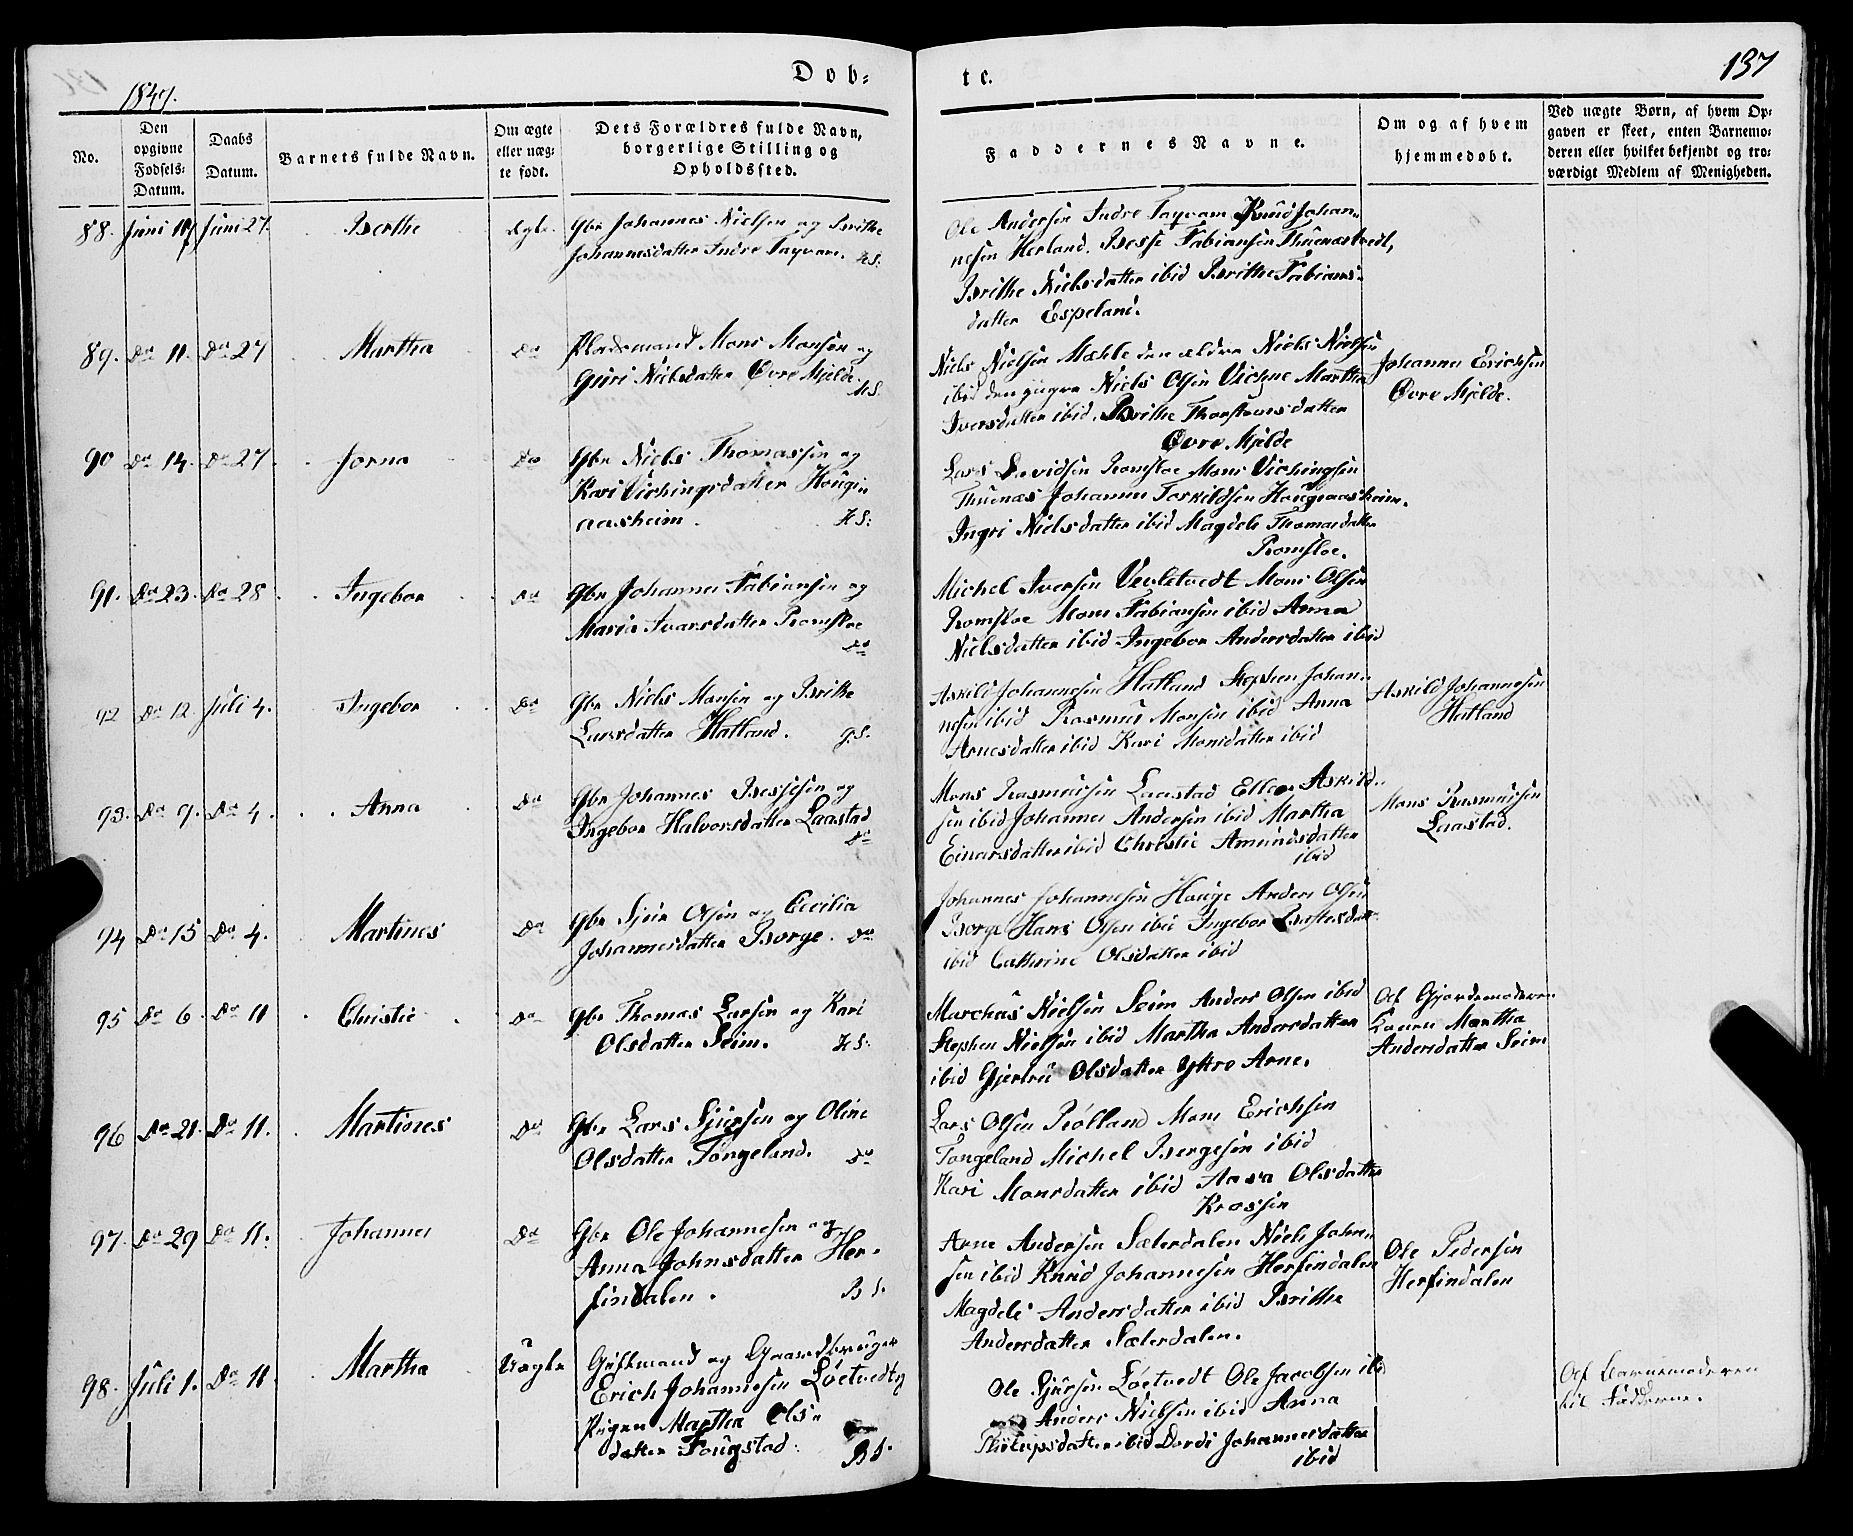 Døb-
te.
137
1847.
No.
Den opgivne Fødsels-Datum.
Daabs Datum.
Barnets fulde Navn.
Om ægte eller uægte født.
Dets Forældres fulde Navn, borgerlige Stilling og Opholdssted.
Faddernes Navne.
Om og af hvem hjemmedøbt.
Ved uægte Børn, af hvem Opgaven er skeet, enten Barnemoderen eller hvilket bekjendt og troværdigt Medlem af Menigheden.
88. Juni Juni 27. Berthe Egte.
Gbr Johannes Nielsen og Brithe
Johannesdatter Indre Tayvam. HS:
Ole Andersen Indre Tayvam Knud Johan-
nesen Herland. Besse Fabiansen Thuenæstvedt,
Brithe Nielsdatter ibid Brithe Fabians-
datter Espeland.
89. Do 11. Do 27 Martha Do
Pladsmand Mons Monsen og
Guri Nielsdatter Øvre Mjelde HS.
Niels Nielsen Mæhle den ældre Niels Nielsen
ibid den yngre Niels Olsen Vichne Martha
Iversdatter ibid. Brithe Thorstensdatter
Øvre Mjelde
Johannes Erichsen
Øvre Mjelde.
90 Do 14. Do 27. Jorna Do
Gbr Niels Thomassen og
Kari Vichingsdatter Hougn-
aasheim. HS:
Lars Davidsen Romsloe Mons Vichingsen
Thuenæs Johannes Torkildsen Hougnaasheim.
Ingri Nielsdatter ibid Magdeli Thomasdatter
Romsloe.
91. Do 23. Do 28 Ingebor Do
Gbr Johannes Fabiansen og
Maria Ivarsdatter Romsloe
Do
Michel Iversen Vevletvedt Mons Olsen
Romsloe Mons Fabiansen ibid Anna
Nielsdatter ibid Ingebor Andersdatter ibid
92 Do 12. Juli 4. Ingebor Do
Gbr Niels Monsen og Brithe
Larsdatter Hatland. G.S.
Askild Johannesen Hatland Stephen Johan-
nesen ibid Rasmus Monsen ibid Anna
Arnesdatter ibid Kari Monsdatter ibid
Askild Johannesen
Hatland
93. Do 9. Do 4. Anna Do
Gbr Johannes Bessesen og
Ingebor Halvorsdatter Laastad
Do
Mons Rasmussen Laastad Ellen Askild-
sen ibid Johannes Andersen ibid Martha
Einarsdatter ibid Christie Amundsdatter
ibid
Mons Rasmussen
Laastad.
94 Do 15 Do 4. Martines Do
Gbr Sjur Olsen og Cecilia
Johannesdatter Borge. Do
Johannes Johannesen Houge Anders Olsen
Borge Hans Olsen ibid Ingebor
ibid Cathrine Olsdatter ibid
95 Do 6. Do 11 Christie Do
Gbr Thomas Larsen og Kari
Olsdatter Seim. HS:
Marchus Nielsen Seim Anders Olsen ibid
Stephen Nielsen ibid Martha Andersdatter
ibid Gjertrü Olsdatter Yttre Arne.
Af Gjordemoderen
Martha
Andersdatter Seim
96 Do 21. Do 11. Martines Do
Gbr Lars Sjursen og Oline
Olsdatter Tongeland. Do
Lars Olsen Rølland Mons Erichsen
Tongeland Michel Børgesen ibid
Kari Monsdatter ibid Aasa Olsdatter
Krossen
97. Do 29 Do 11. Johannes Do
Gbr Ole Johannesen og
Anna Johnsdatter Her-
findalen. BS.
Arne Andersen Sæterdalen Niels Johan-
sen ibid Knud Johannesen Herfindalen
Magdeli Andersdatter ibid Brithe
Andersdatter Sæterdalen.
Ole Pedersen
Herfindalen
98. Juli 1. Do 11 Martha Uægte
Giftmand og Gaardbruger
Erich Johannesen Løetvedt og
Pigen Martha Ols-
datter Fougstad. BS.
Ole Sjursen Løetvedt Ole Jacobsen ibid
Anders Nielsen ibid Anna
Philipsdatter ibid Dordi Johannesdatter
ibid
Af Barnemoderen
til Fadderne.